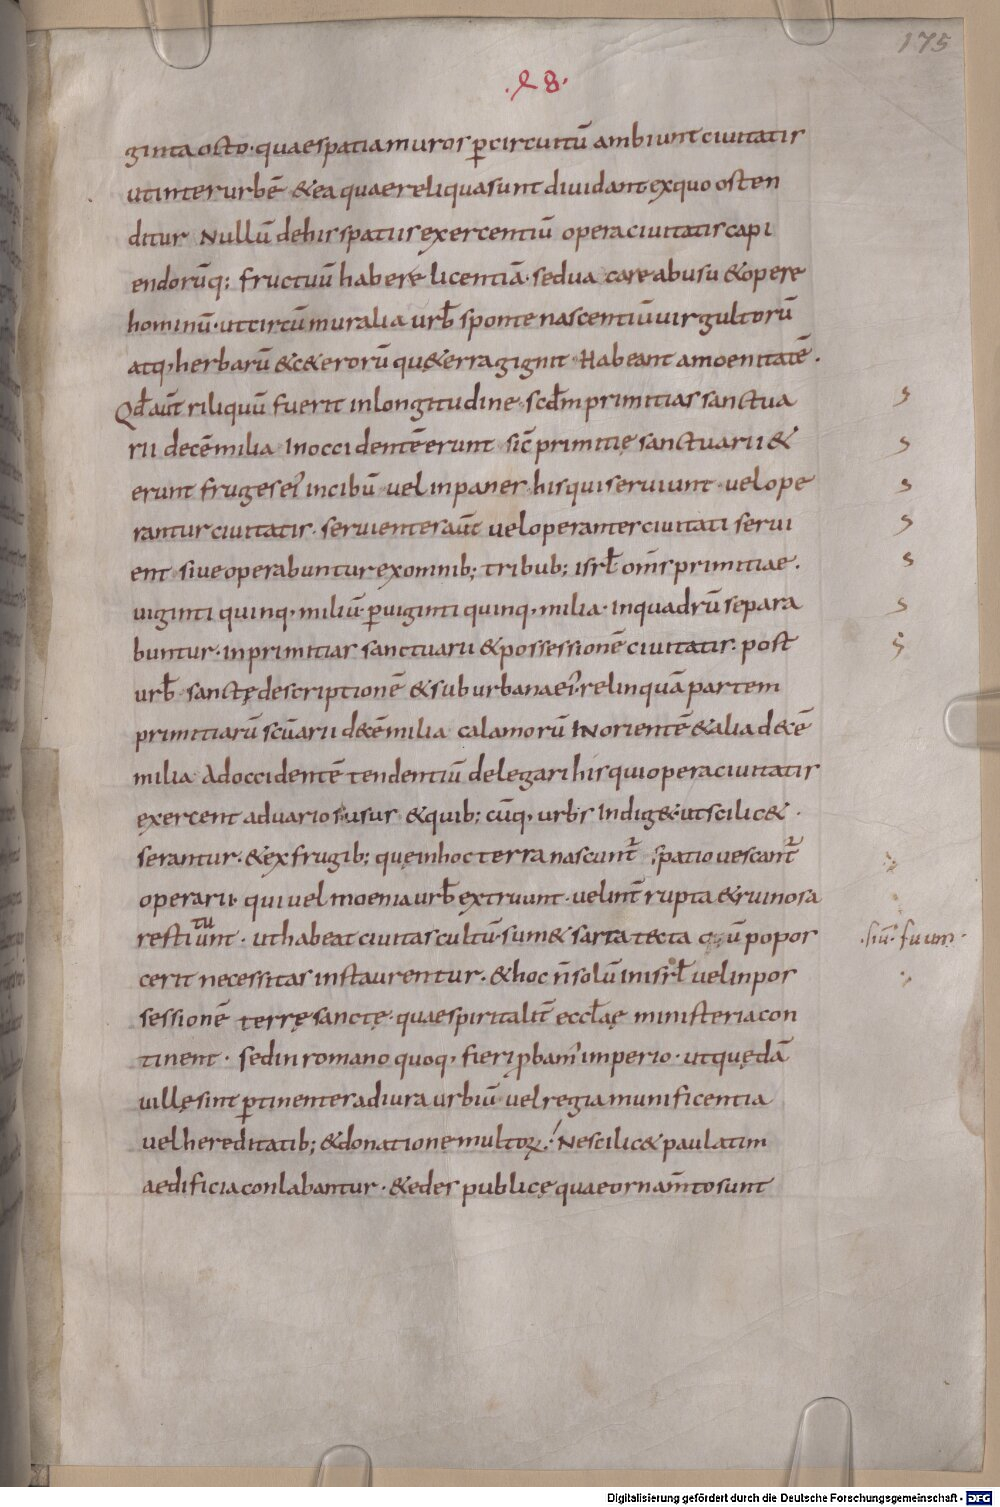 175
.l8.
ginta octo· quae spatia muros p̱ circuitū ambiunt ciuitatis
ut inter urbē & ea quae reliqua sunt diuidant ex quo osten
ditur Nullū de his spatiis exercentiū opera ciuitatis capi
endorūq; fructuū habere licentiā· sed ua care abusu & opere
hominū· ut circū muralia urb̄ sponte nascentiū uirgultorū
atq, herbarū & c&erorū qu&erra gignit Habeant amoenitatē.
Qd̄ aūt riliquū fuerit in longitudine· scd̄m primitias sanctua
rii decē milia In occidentē erunt sic̄ primitię sanctuarii &
erunt fruges ei' in cibū· uel in panes· his qui seruiunt· uel ope
rantur ciuitatis· seruientes aūt uel operantes ciuitati serui
ent siue operabuntur ex omnib; tribub; isrł om̄s primitiae.
uiginti quinq, miliū· p̱ uiginti quinq, milia· In quadrū separa
buntur· in primitias sanctuarii & possessionē ciuitatis· post
urb̄· sanctę descriptionē & suburbana ei'· relinquā partem
primitiarū scūarii decē milia calamorū IN orientē & alia d&ē
milia Ad occidentē tendentiū delegari his qui opera ciuitatis
exercent ad uarios usus & quib; cūq, urbs Indig&· ut scilic& ·
serantur· & ex frugib; quę in hoc terra nascunt̄ spatio uescant̄
operarii· qui uel moenia urb̄ extruunt· uel int̄rupta & ruinosa
resti unt· ut habeat ciuitas cultū· sum& sarta tecta ū popos
tu
cerit necessitas instaurentur· & hoc ñ solū in isrł uel in pos
sessionē terrę sanctę· quae spiritalit̄ eccłae ministeria con
tinent· sed in romano quoq, fieri p̱bam' imperio· ut quędā
uillę sint p̱tinentes ad iura urbiū uel regia munificentia
uel hereditatib; & donatione multoꝝ· Ne scilic& paulatim
aedificia conlabantur· & edes publicę quae ornam̄to sunt
Digitalisierung gefördert durch die Deutsche Forschungsgemeinschaft - DFG